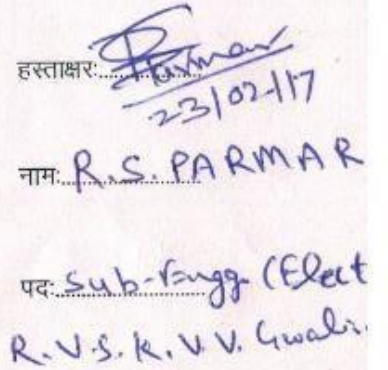 हस्ताक्षर:.......Parmar
23/02/17
नाम: R.S. PARMAR
पद: Sub-Engg. (Elect
R.V.S.K.V.V. Gwalior.